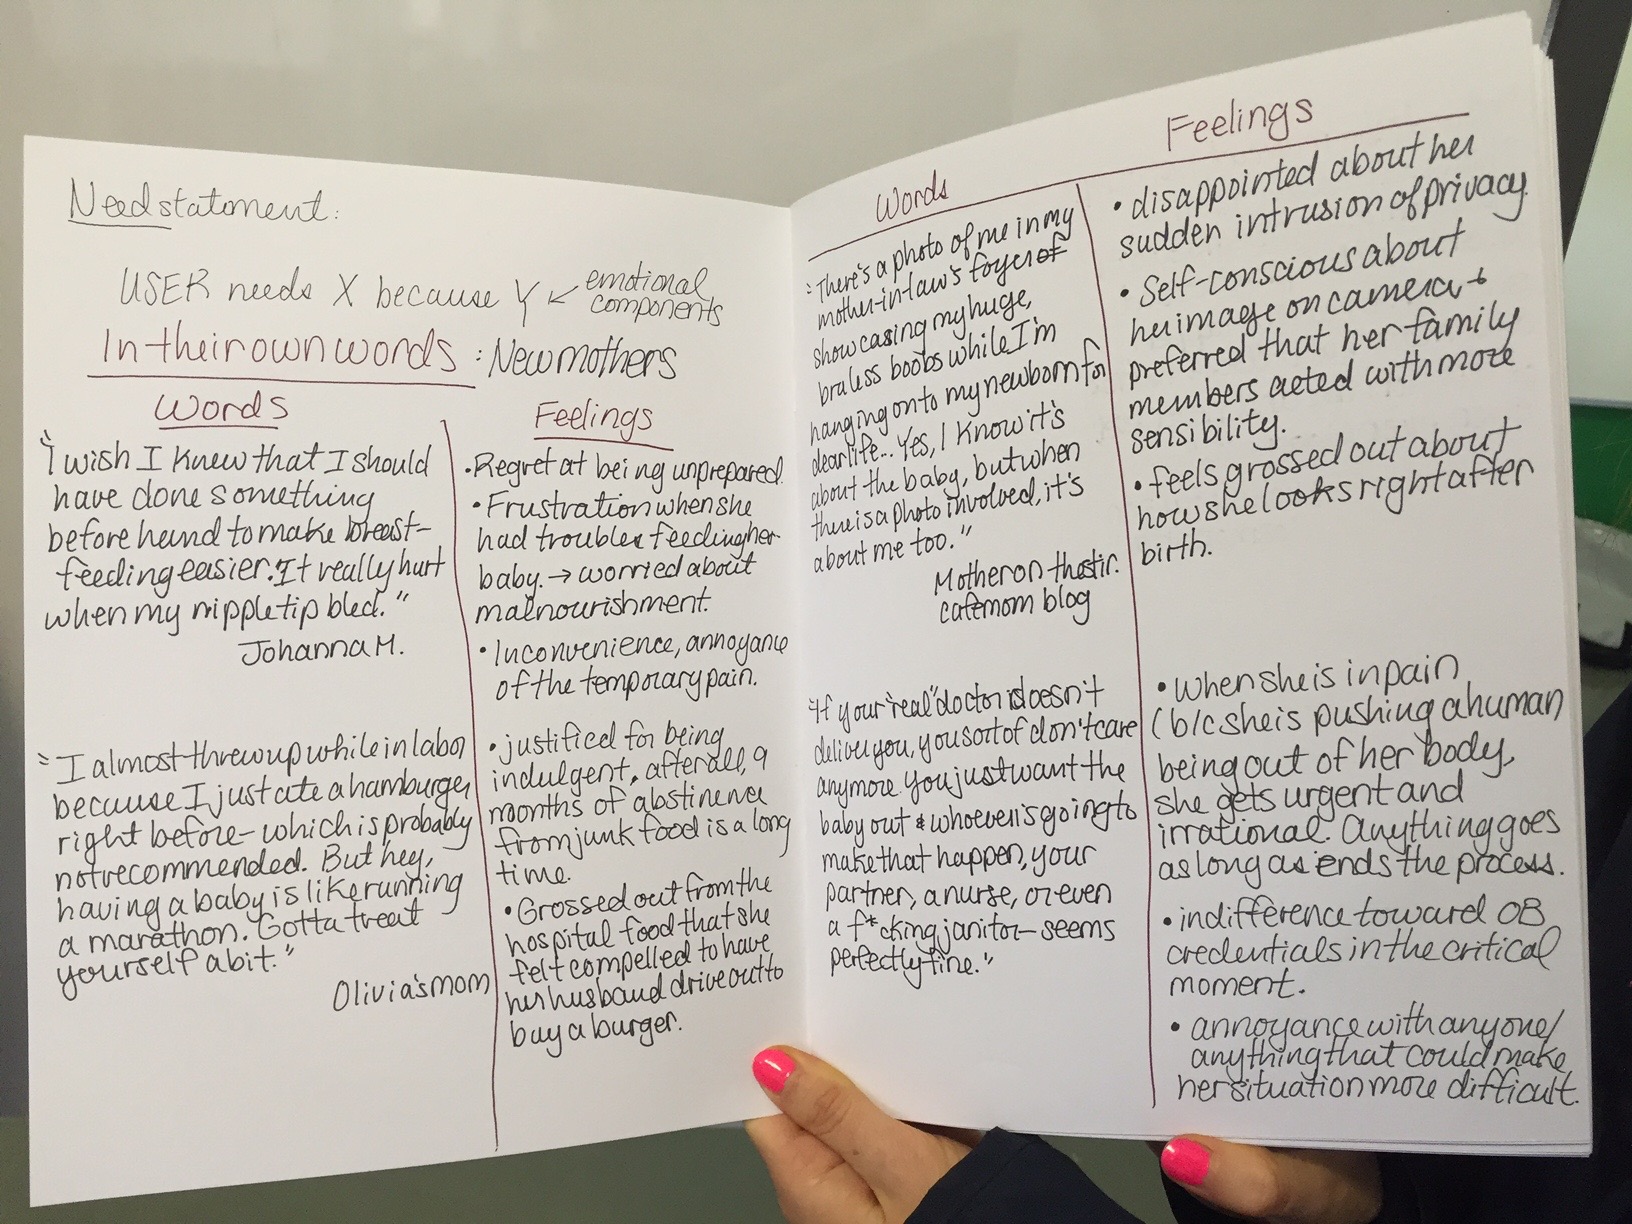 Need statement:
USER needs X because Y ← emotional
components
In their own words : New mothers
Words
"I wish I knew that I should
have done something
before hand to make breast-
feeding easier. It really hurt
when my nipple tip bled."
Johanna M.
"I almost threw up while in labor
because I just ate a hamburger
right before – which is probably
not recommended. But hey,
having a baby is like running
a marathon. Gotta treat
yourself a bit."
Olivia's mom
Feelings
• Regret at being unprepared.
• Frustration when she
had trouble feeding her
baby. → worried about
malnourishment.
• Inconvenience, annoyance
of the temporary pain.
• justified for being
indulgent, after all, 9
months of abstinence
from junk food is a long
time.
• Grossed out from the
hospital food that she
felt compelled to have
her husband drive out to
buy a burger.
Words
"There's a photo of me in my
mother-in-law's foyer of
showcasing my huge,
braless boobs while I'm
hanging onto my newborn for
dear life... Yes, I know it's
about the baby, but when
there is a photo involved, it's
about me too."
Mother on the stir.
cafemom blog
"If your "real" doctor doesn't
deliver you, you sort of don't care
anymore. You just want the
baby out & whoever is going to
make that happen, your
partner, a nurse, or even
a f*cking janitor – seems
perfectly fine."
Feelings
• disappointed about her
sudden intrusion of privacy.
• Self-conscious about
her image on camera +
preferred that her family
members acted with more
sensibility.
• feels grossed out about
how she looks right after
birth.
• When she is in pain
(b/c she is pushing a human
being out of her body,
she gets urgent and
irrational. Anything goes
as long as ends the process.
• indifference toward OB
credentials in the critical
moment.
• annoyance with anyone/
anything that could make
her situation more difficult.